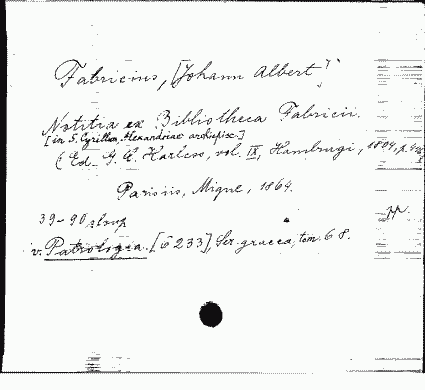 Fabricius, [Johann Albert]
Notitia ex Bibliotheca Fabricii.
[in S. Cyrillum Alexandriae archiepisc.]
(Ed. G. C. Harless, vol. IX, Hamburgi, 1804, p.
Parisiis, Migne, 1864.
39-90 sloup
v. Patrologia. [6 233], Ser. graeca, tom. 68.